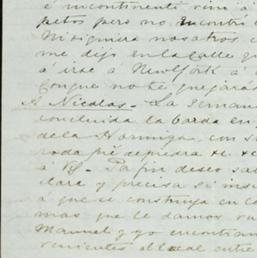 é incontinente vino á
petos pero no encontró
Ni siquiera nosotros
me dijo en la calle q
á irse á New York á
Conque no te quejarás
A Nicolas - La semana
concluida la barda en
de la Hormiga, con su
roda pié de piedra &. &
á V. - Papá desea sa
clara y precisa si ins
á que se construya en la
mas que le damos va
Manuel y yo encontramos
venientes el local entre